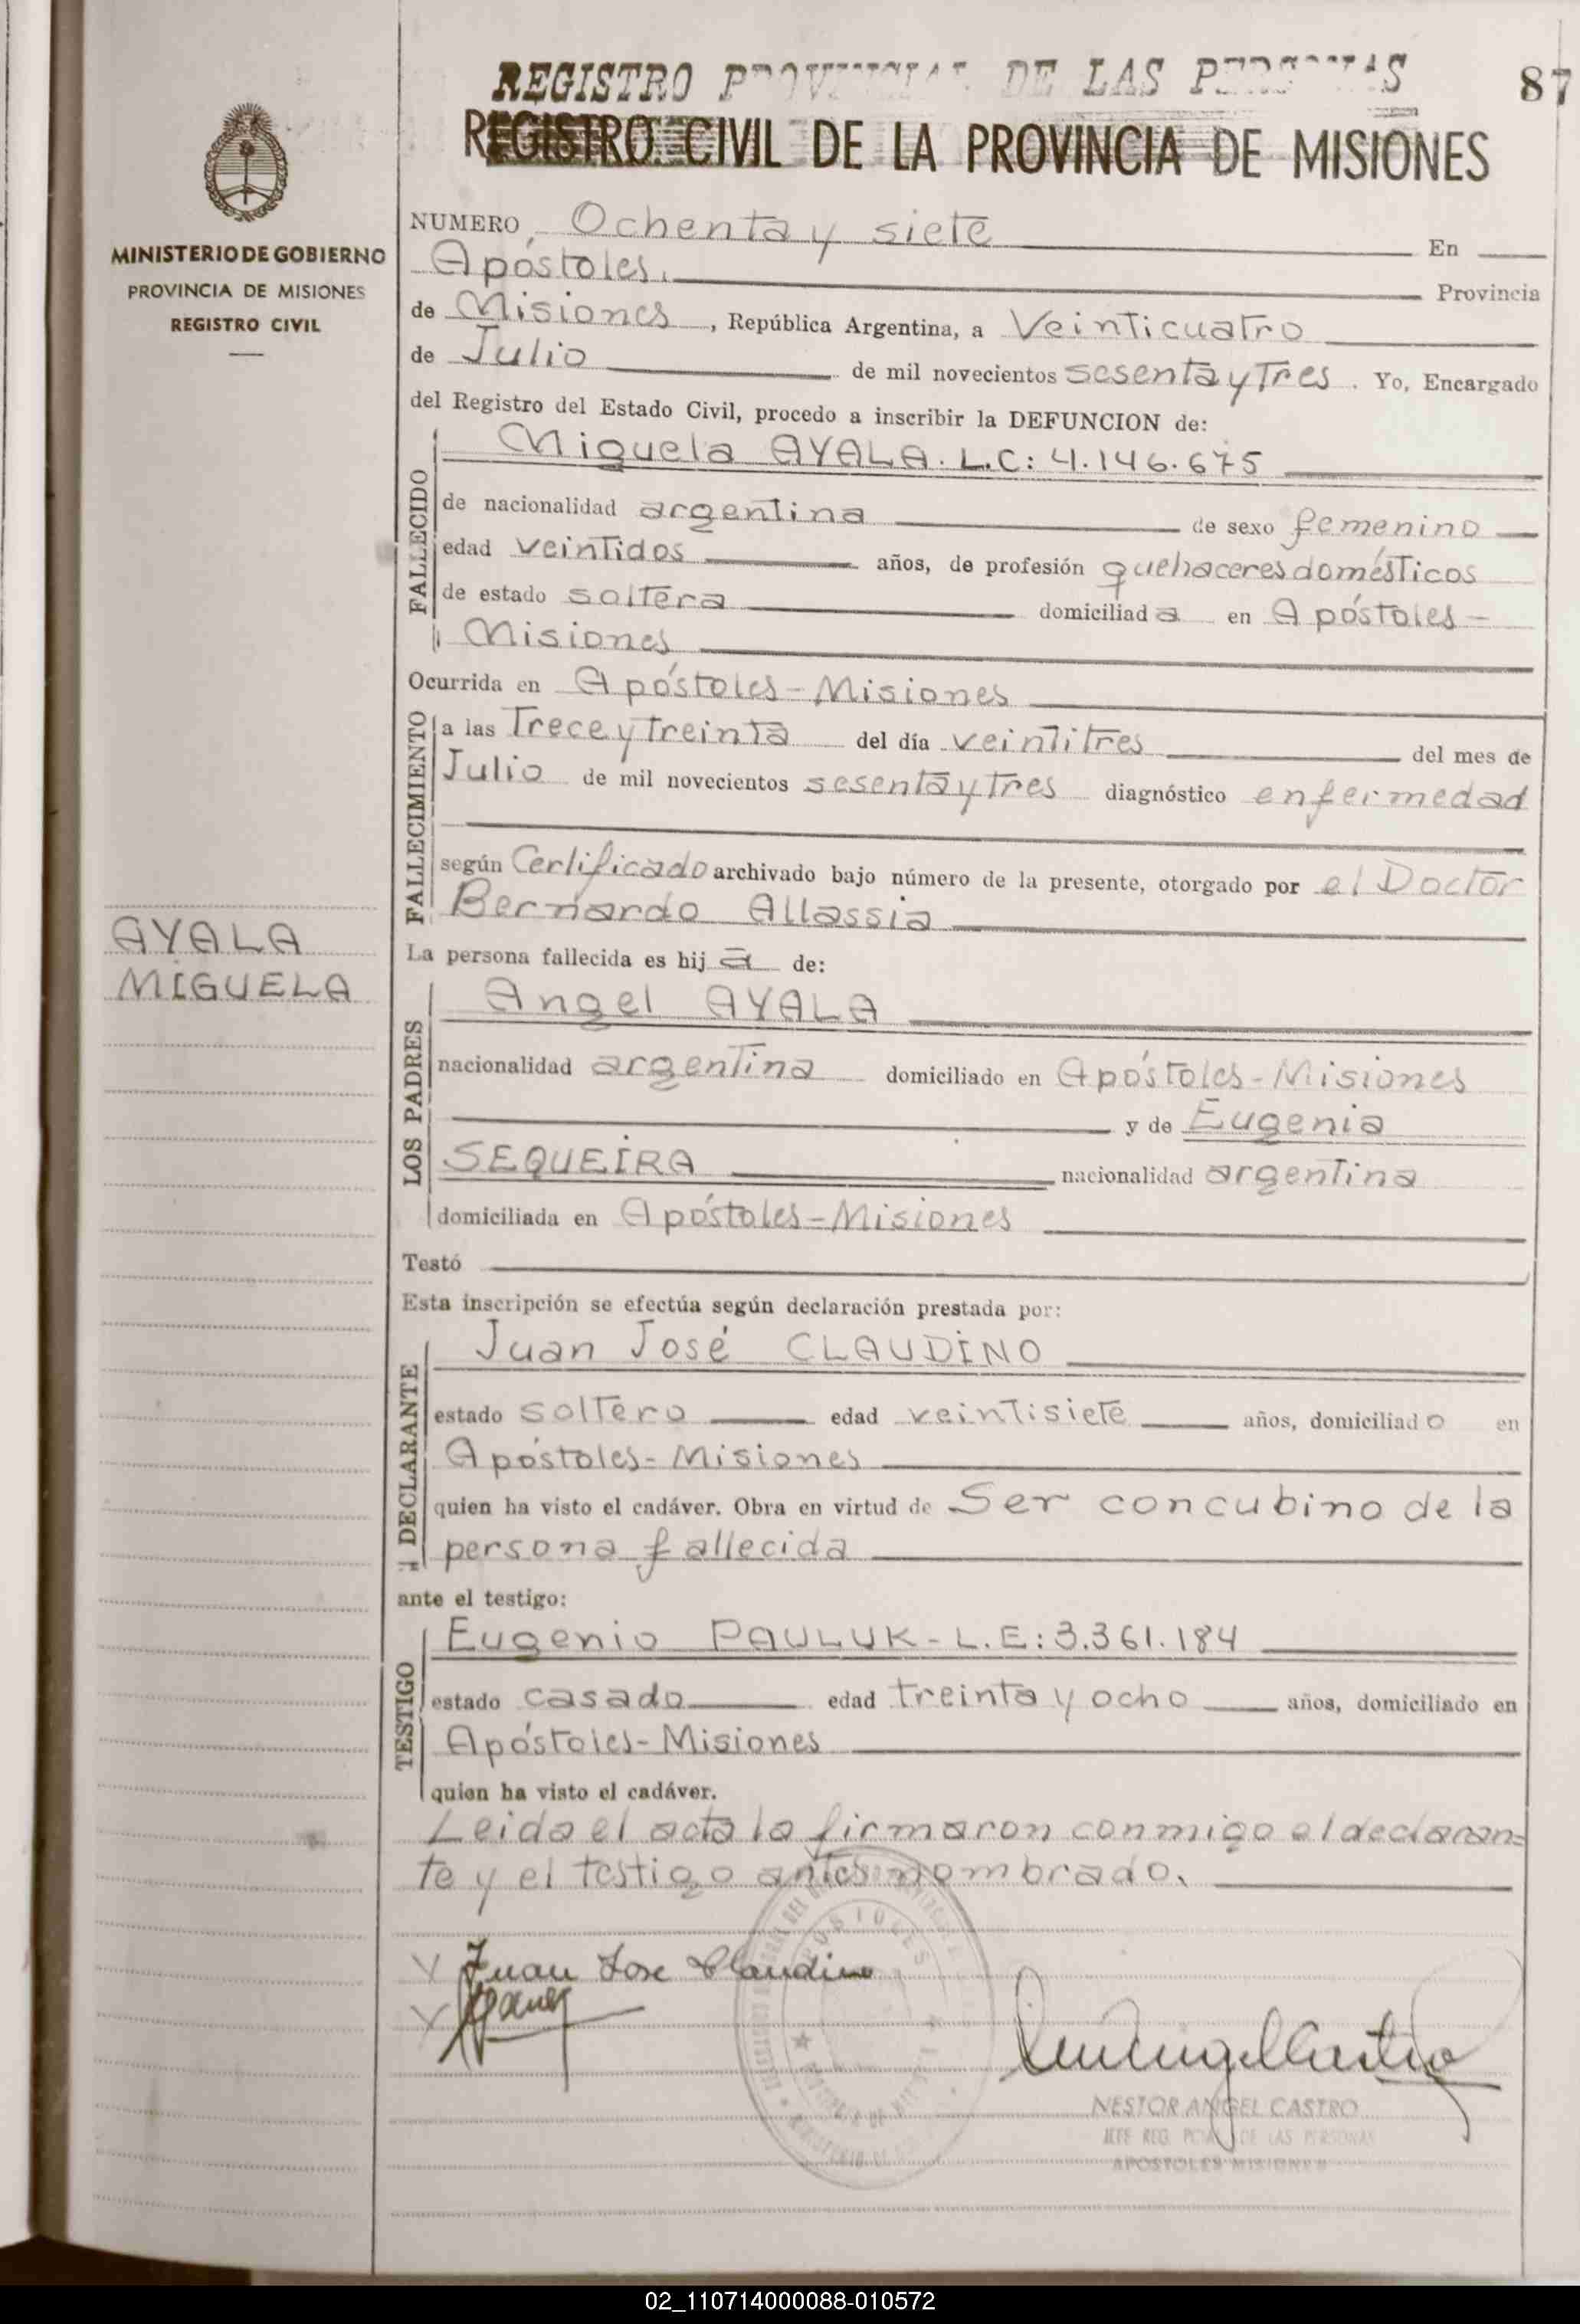 REGISTRO PROVINCIAL DE LAS PERSONAS
87
REGISTRO CIVIL DE LA PROVINCIA DE MISIONES
MINISTERIO DE GOBIERNO
PROVINCIA DE MISIONES
REGISTRO CIVIL
NUMERO Ochenta y siete En
Apóstoles. Provincia
de Misiones, República Argentina, a Veinticuatro
de Julio de mil novecientos sesenta y Tres. Yo, Encargado
del Registro del Estado Civil, procedo a inscribir la DEFUNCION de:
FALLECIDO
Miguela AYALA. L.C: 4.146.675
de nacionalidad argentina de sexo femenino
edad veintidos años, de profesión quehaceres domésticos
de estado soltera domiciliada en Apóstoles-
Misiones
Ocurrida en Apóstoles-Misiones
FALLECIMIENTO
a las Trece y treinta del día veintitres del mes de
Julio de mil novecientos sesenta y Tres diagnóstico enfermedad
según Certificado archivado bajo número de la presente, otorgado por el Doctor
Bernardo Allassia
AYALA
MIGUELA
La persona fallecida es hija de:
LOS PADRES
Angel AYALA
nacionalidad argentina domiciliado en Apóstoles-Misiones
y de Eugenia
SEQUEIRA nacionalidad argentina
domiciliada en Apóstoles-Misiones
Testó
Esta inscripción se efectúa según declaración prestada por:
DECLARANTE
Juan José CLAUDINO
estado soltero edad veintisiete años, domiciliado en
Apóstoles-Misiones
quien ha visto el cadáver. Obra en virtud de Ser concubino de la
persona fallecida
ante el testigo:
TESTIGO
Eugenio PAULUK-L.E:3.361.184
estado casado edad treinta y ocho años, domiciliado en
Apóstoles-Misiones
quien ha visto el cadáver.
Leida el acta la firmaron conmigo el declaran=
te y el testigo antes nombrado.
Juan Jose Claudino
NESTOR ANGEL CASTRO
JEFE REG. PCIAL DE LAS PERSONAS
APOSTOLES MISIONES
02_110714000088-010572